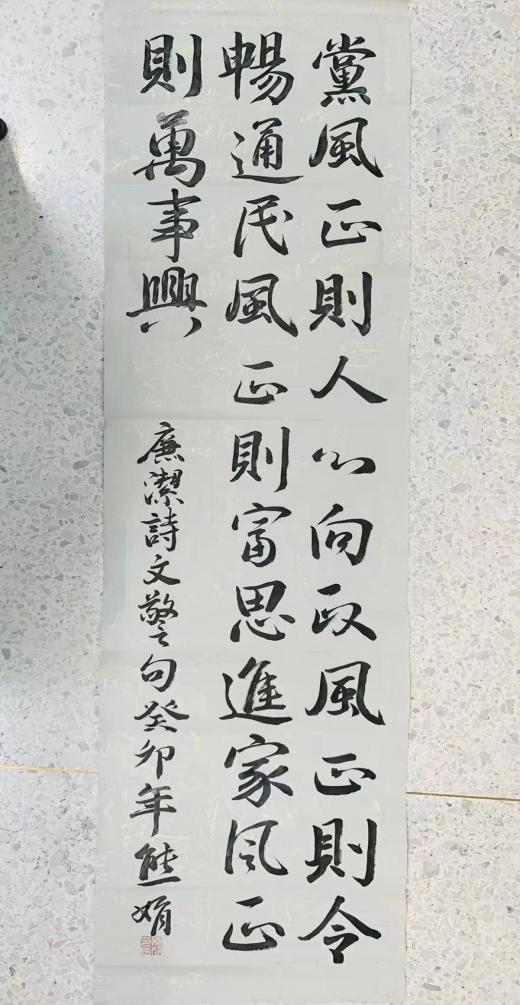 黨風正則人心向政風正則令
暢通民風正則富思進家风正
則萬事興
廉潔詩文警句癸卯年熊娟